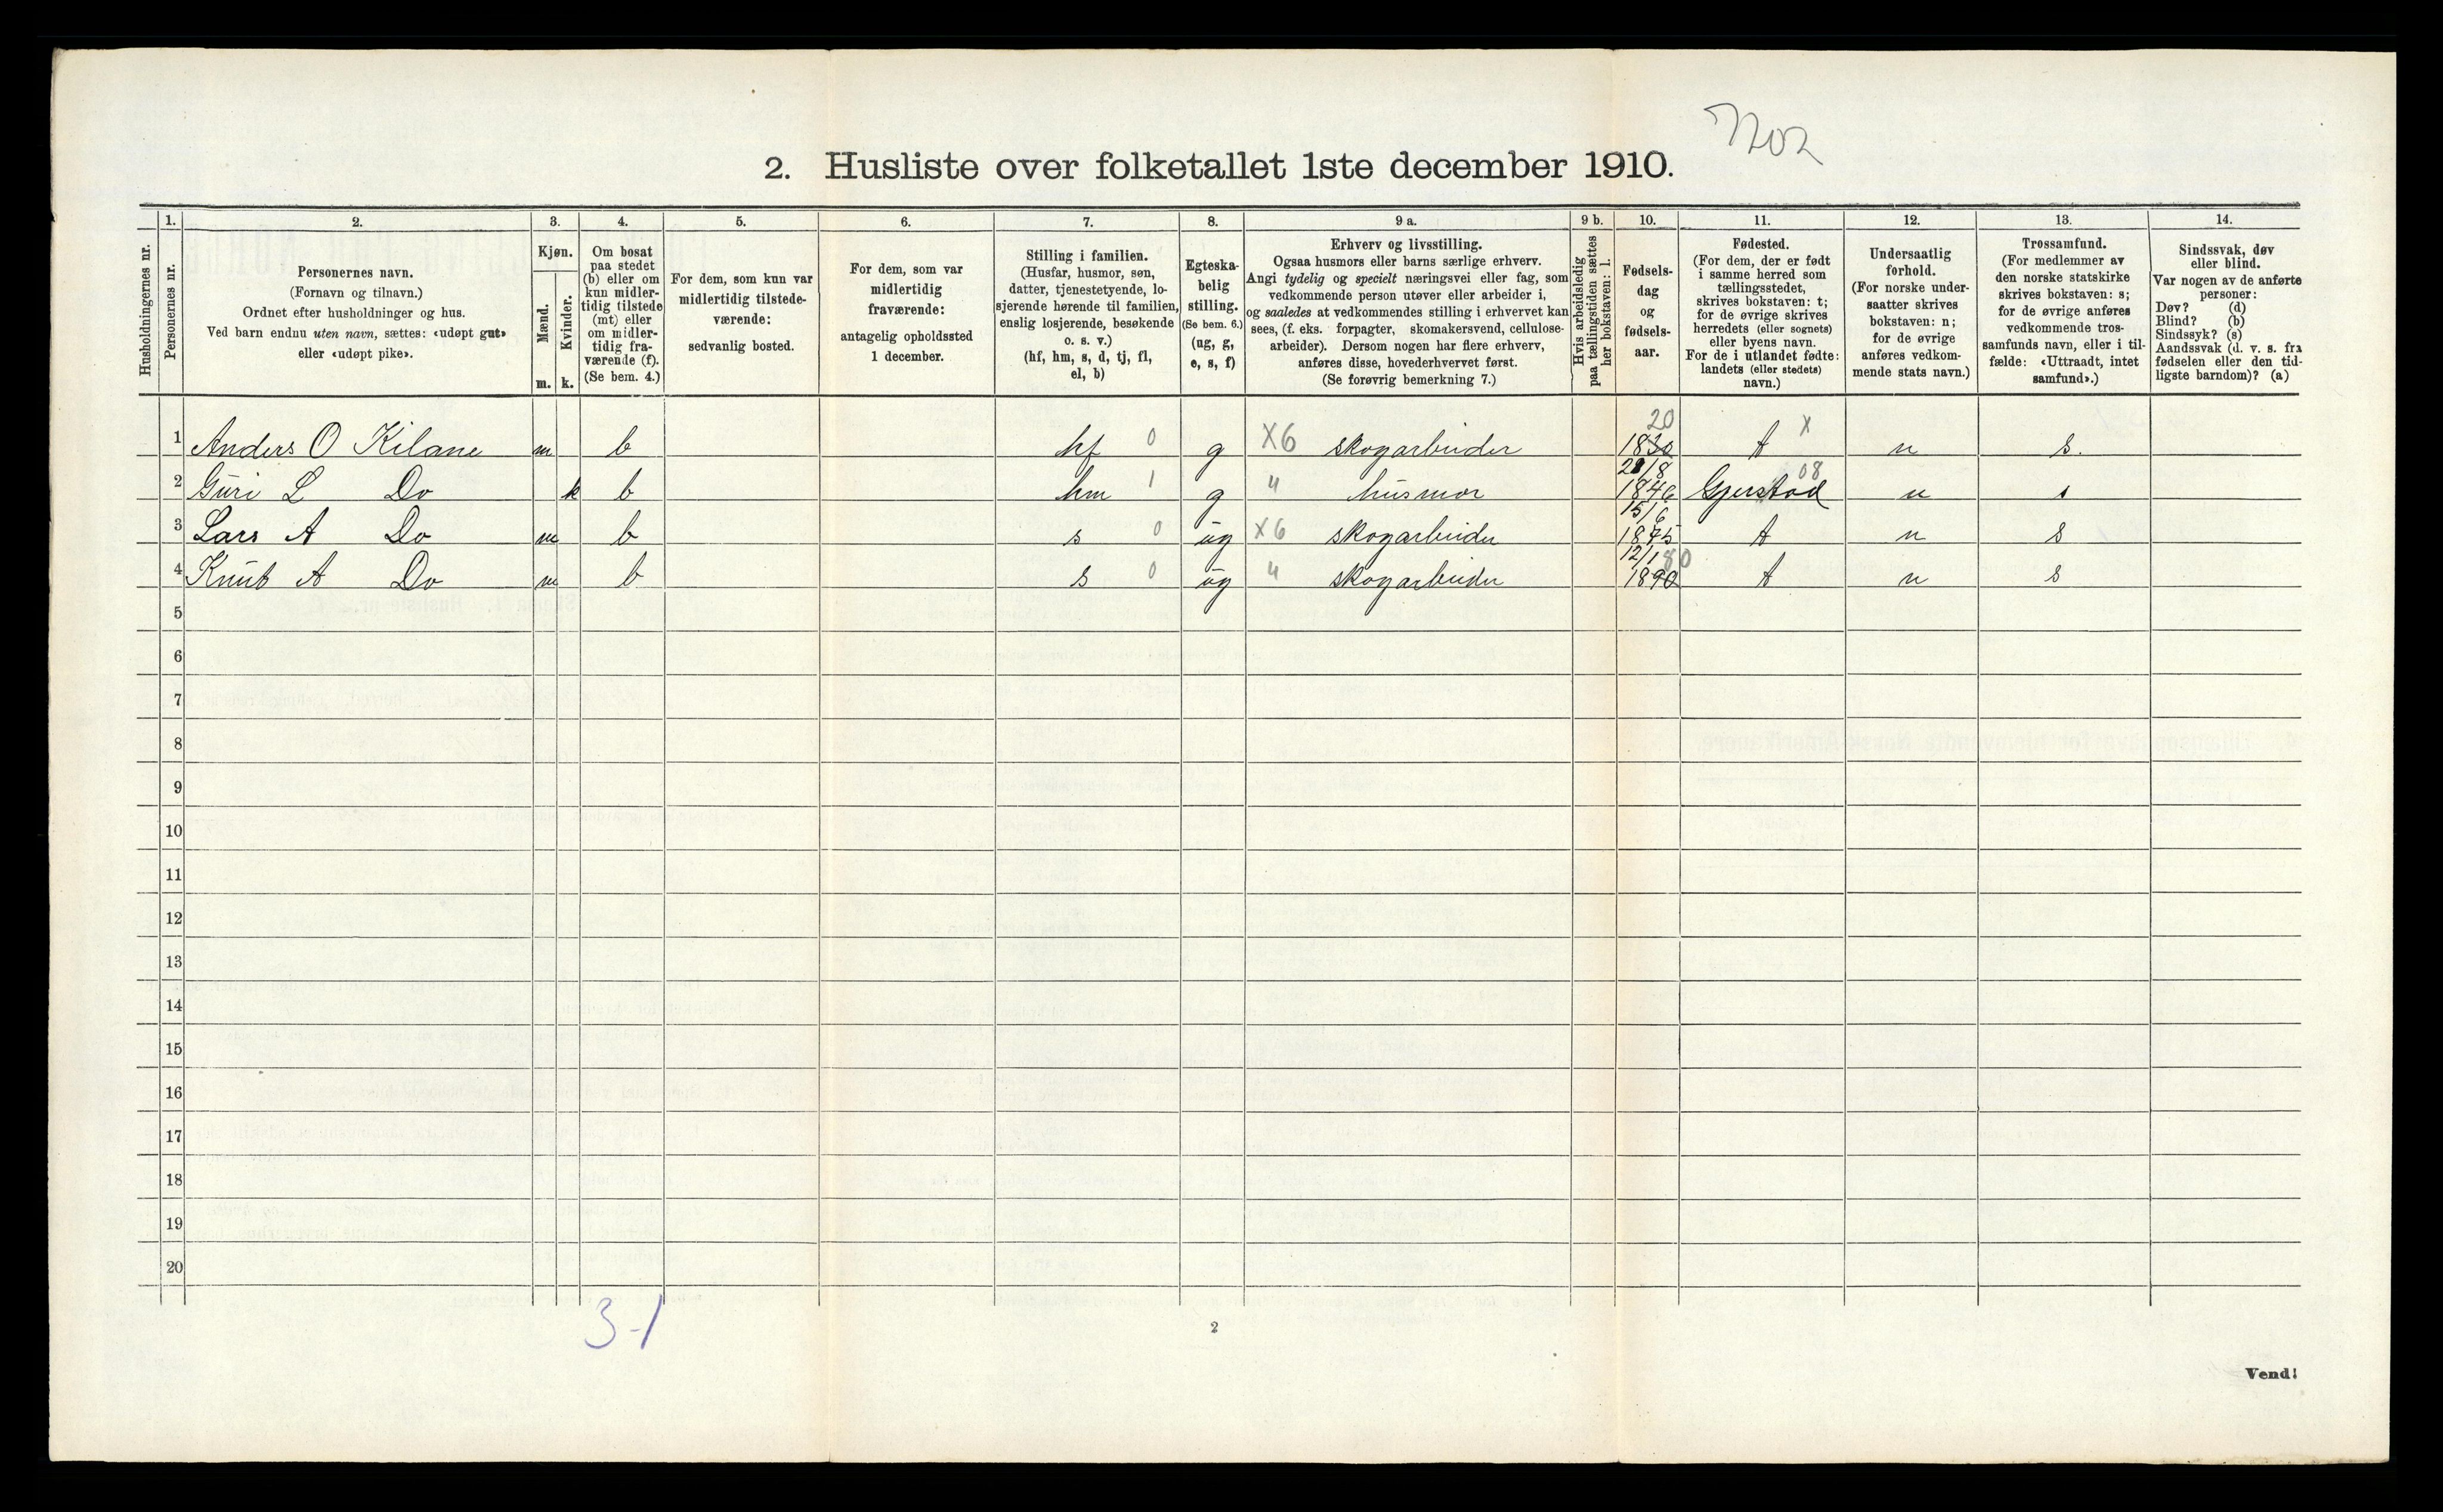 2. Husliste over folketallet 1ste december 1910.
Husholdningernes nr.
1.
Personernes nr.
2.
Personernes navn.
(Fornavn og tilnavn.)
Ordnet efter husholdninger og hus.
Ved barn endnu uten navn, sættes: «udøpt gut»
eller «udøpt pike».
3.
Kjøn.
Mænd.
m.
Kvinder.
k.
4.
Om bosat
paa stedet
(b) eller om
kun midler-
tidig tilstede
(mt) eller
om midler-
tidig fra-
værende (f).
(Se bem. 4.)
5.
For dem, som kun var
midlertidig tilstede-
værende:
sedvanlig bosted.
6.
For dem, som var
midlertidig
fraværende:
antagelig opholdssted
1 december.
7.
Stilling i familien.
(Husfar, husmor, søn,
datter, tjenestetyende, lo-
sjerende hørende til familien,
enslig losjerende, besøkende
o. s. v.)
(hf, hm, s, d, tj, fl,
el, b)
8.
Egteska-
belig
stilling.
(Se bem. 6.)
(ug, g,
e, s, f)
9 a.
Erhverv og livsstilling.
Ogsaa husmors eller barns særlige erhverv.
Angi tydelig og specielt næringsvei eller fag, som
vedkommende person utøver eller arbeider i,
og saaledes at vedkommendes stilling i erhvervet kan
sees, (f. eks. forpagter, skomakersvend, cellulose-
arbeider). Dersom nogen har flere erhverv,
anføres disse, hovederhvervet først.
(Se forøvrig bemerkning 7.)
9 b.
Hvis arbeidsledig
paa tællingstiden sættes
her bokstaven: l.
10.
Fødsels-
dag
og
fødsels-
aar.
11.
Fødested.
(For dem, der er født
i samme herred som
tællingsstedet,
skrives bokstaven: t;
for de øvrige skrives
herredets (eller sognets)
eller byens navn.
For de i utlandet fødte:
landets (eller stedets)
navn.)
12.
Undersaatlig
forhold.
(For norske under-
saatter skrives
bokstaven: n;
for de øvrige
anføres vedkom-
mende stats navn.)
13.
Trossamfund.
(For medlemmer av
den norske statskirke
skrives bokstaven: s;
for de øvrige anføres
vedkommende tros-
samfunds navn, eller i til-
fælde: «Uttraadt, intet
samfund».)
14.
Sindssvak, døv
eller blind.
Var nogen av de anførte
personer:
Døv? (d)
Blind? (b)
Sindssyk? (s)
Aandssvak (d. v. s. fra
fødselen eller den tid-
ligste barndom)? (a)
1 Anders O Kilane m b hf 0 g X6 skogarbeider 20 1830 t X n s.
2 Guri L Do k b hm 1 g " husmor 1846 Gjerstad 08 n s
3 Lars A Do m b s 0 ug X6 skogarbeider 15/6 1875 t n s
4 Knut A Do m b s 0 ug " skogarbeider 12/1 80 1890 t n s
5
6
7
8
9
10
11
12
13
14
15
16
17
18
19
20
3-1
2
Vend!